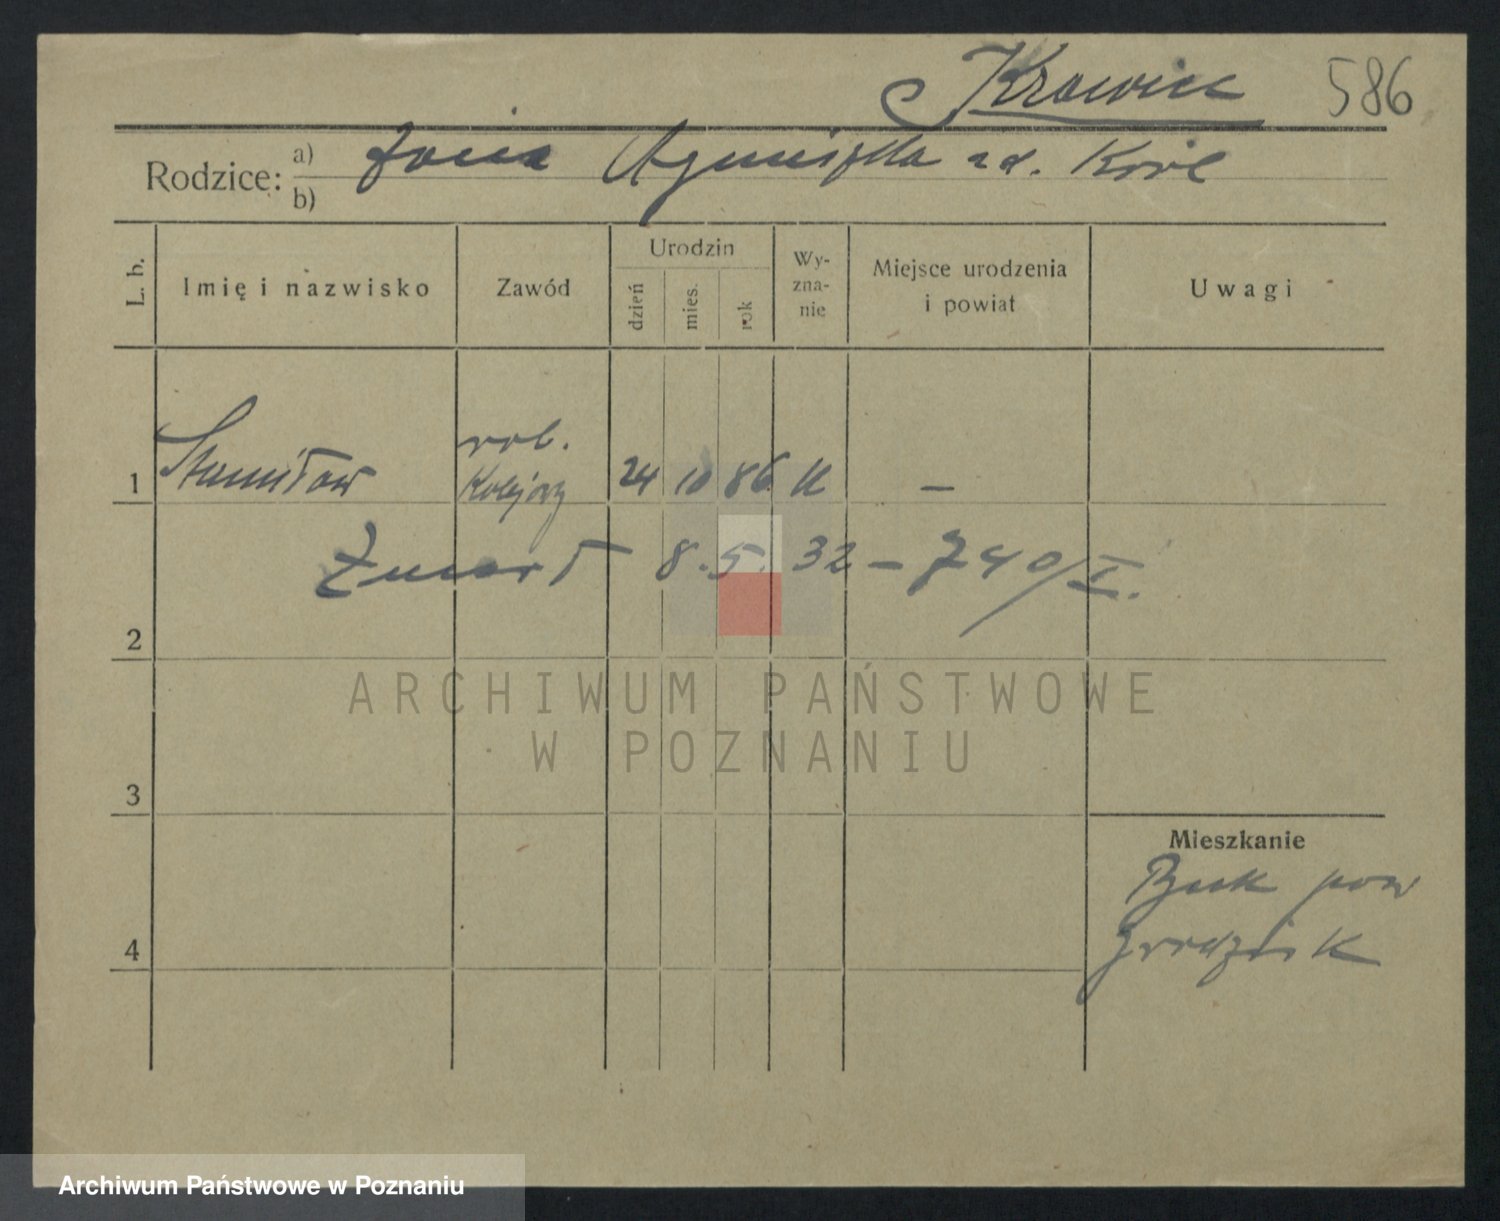 Krawiec 586
Rodzice: a) żona Agnieszka zd. Król
b)
L. b. Imię i nazwisko Zawód Urodzin dzień mies. rok Wy-zna-nie Miejsce urodzenia i powiat Uwagi
rob.
1 Stanisław Kolejowy 24 10 86 K —
Zmarł 8.5.32 – 740/I.
2
ARCHIWUM PAŃSTWOWE
W POZNANIU
3
Mieszkanie
Buk pow
4 Grodzisk
Archiwum Państwowe w Poznaniu